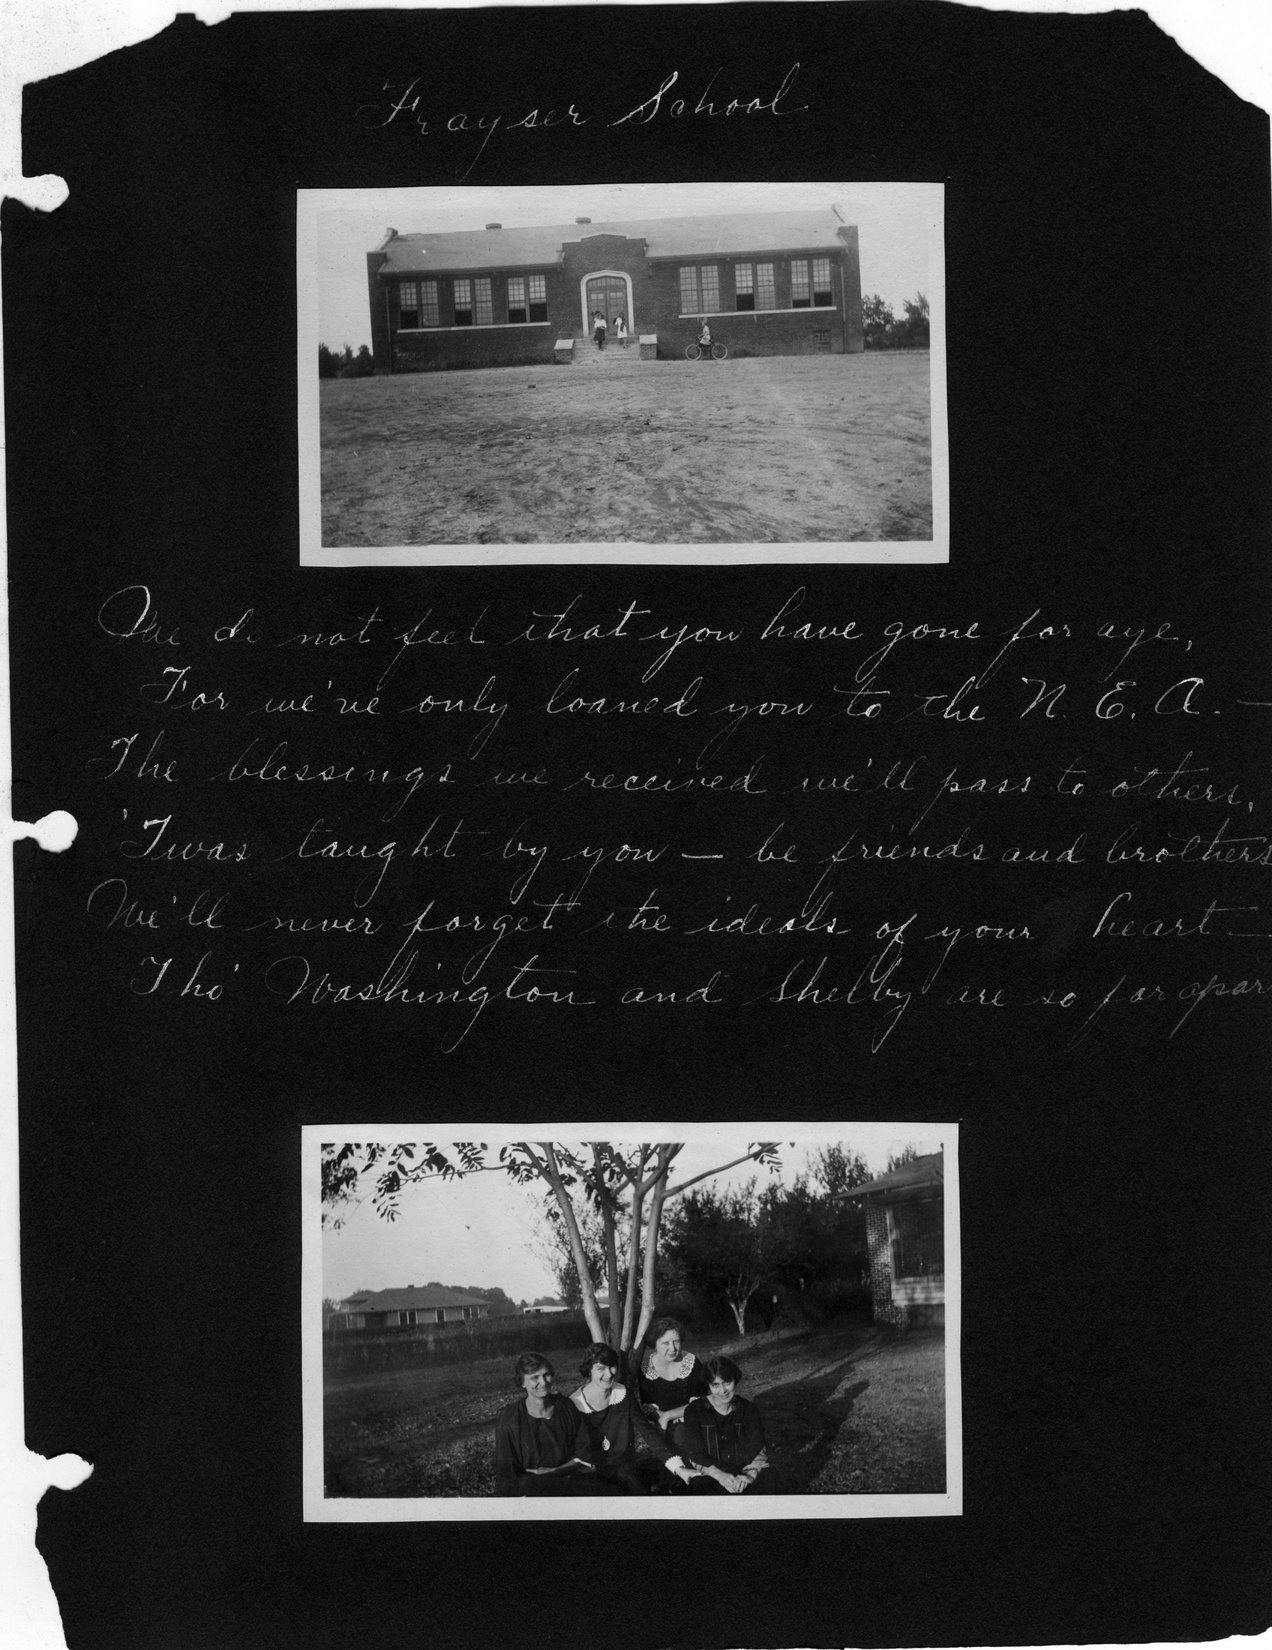 Frayser School
We do not feel that you have gone for aye,
For we've only loaned you to the N. E. A. —
The blessings we received we'll pass to others,
'Twas taught by you — be friends and brothers
We'll never forget the ideals of your heart —
Tho' Washington and Shelby are so far apar